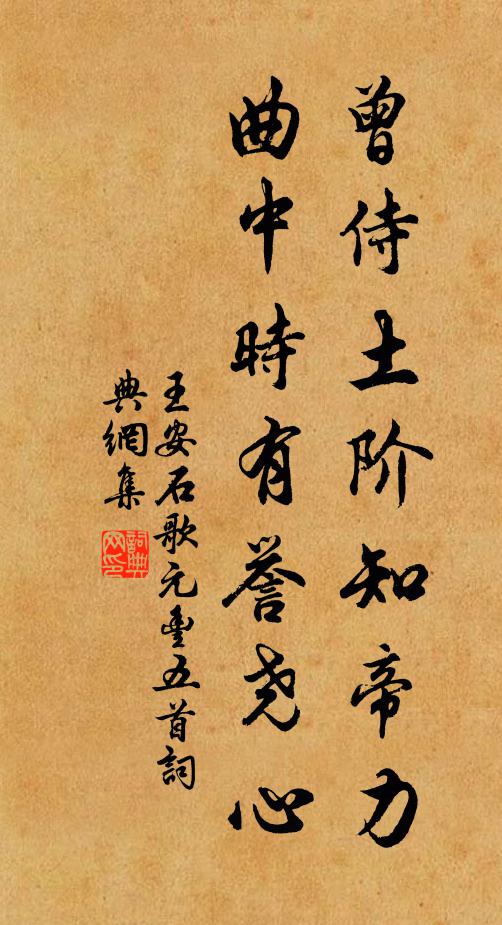 曾侍土阶知帝力
曲中時有誉尧心
王安石歌元豊五首詞
典網集
詞典网印